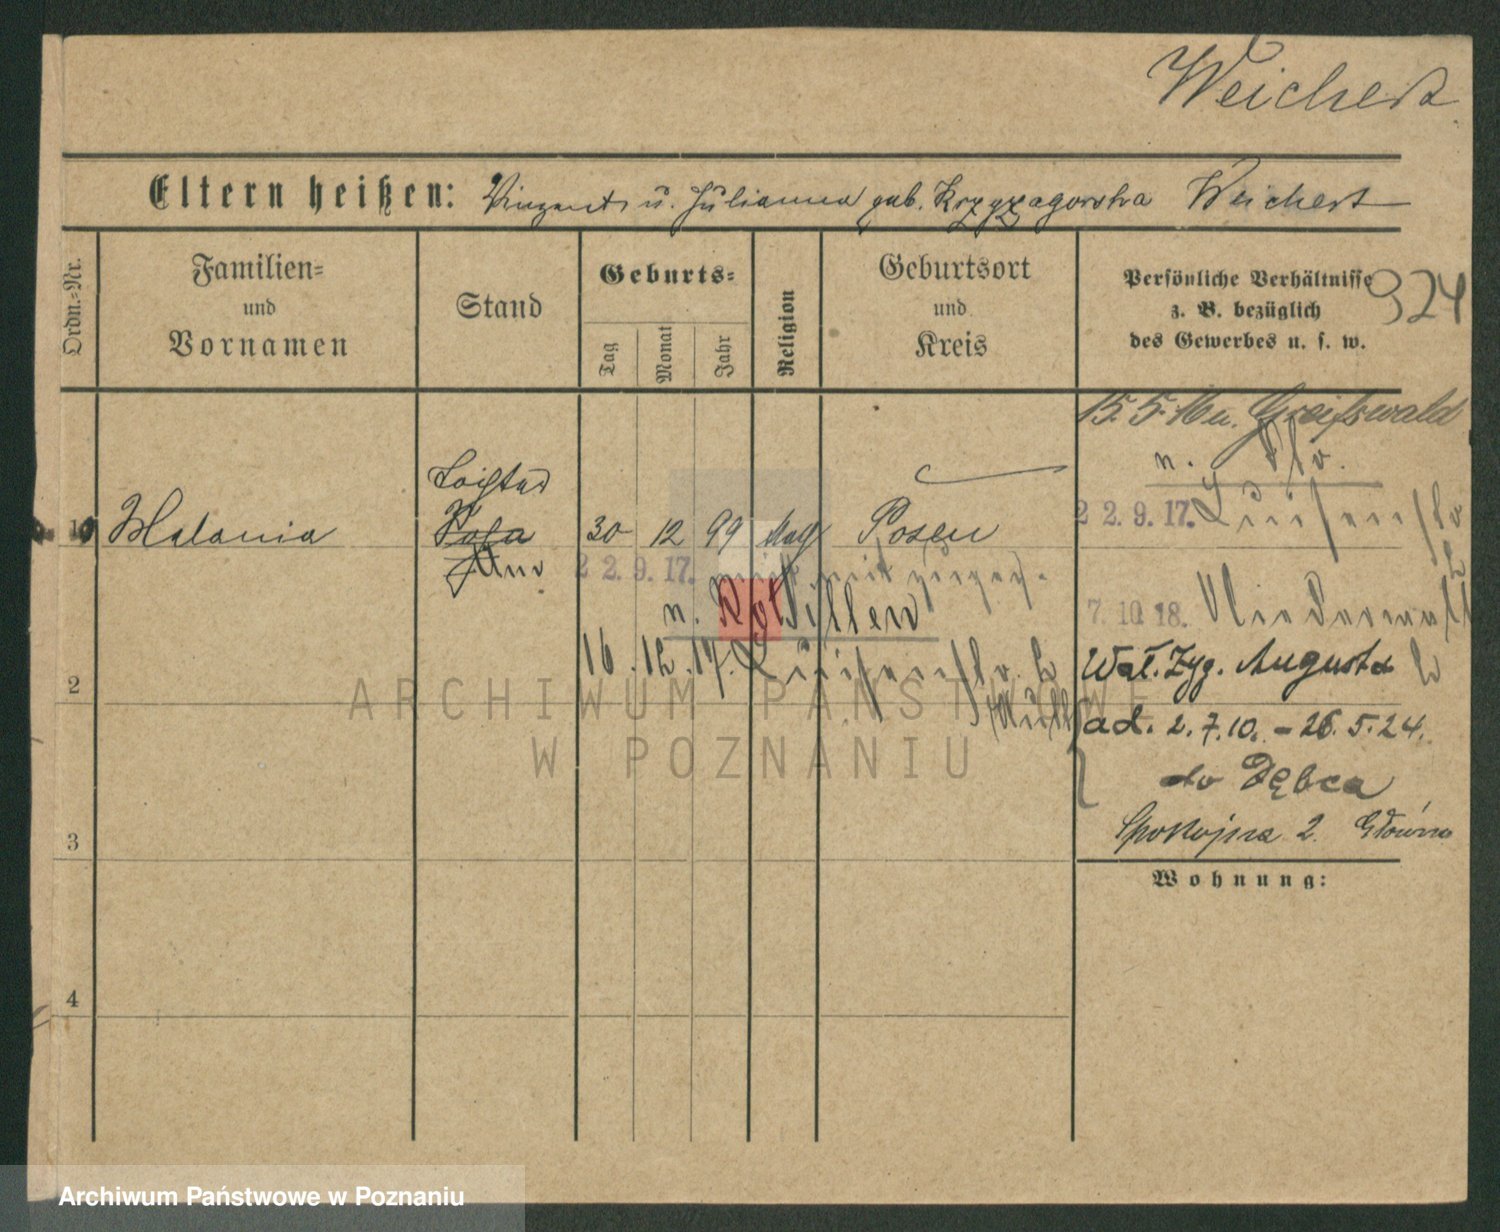 Weichert
Eltern heißen: Vinzent u. Julianna geb. Krzyzagorska Weichert
Ordn.=Nr.
Familien=
und
Vornamen
Stand
Geburts=
Tag
Monat
Jahr
Religion
Geburtsort
und
Kreis
Persönliche Verhältnisse
z. B. bezüglich
des Gewerbes u. s. w.
324
15.5.16 n. Greifswald
n.
22.9.17.
1 Melania
30 12 99
Posen
22.9.17.
n.
7.10.18.
16.12.17.
Augusta
2
ad. 2.7.10. - 26.5.24.
do Dębca
3
Spokojna 2. Główna
Wohnung:
4
ARCHIWUM PAŃSTWOWE
W POZNANIU
Archiwum Państwowe w Poznaniu